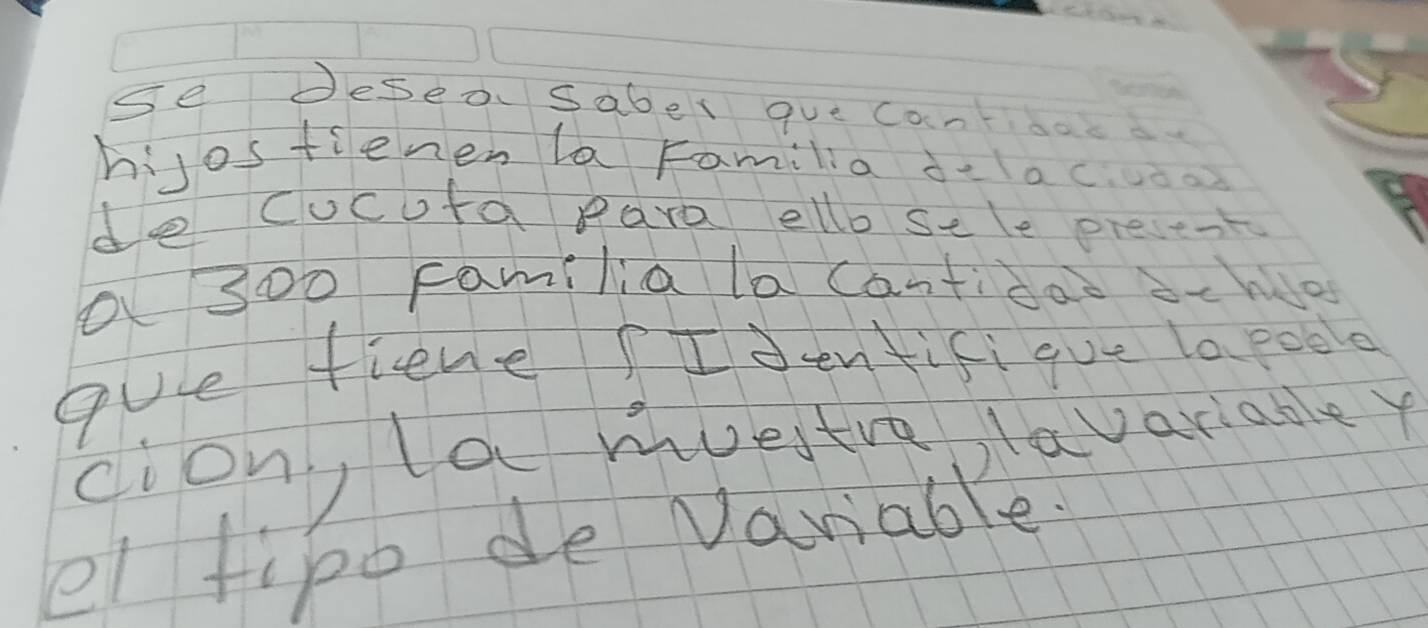 se desea saber que cantidad de
hijos tienen la Familia de la ciudad
de cucuta para ello se le
a 300 Familia la cantidad de hijos
que tiene Identifique la
cion, la muestra, la variable y
el tipo de Variable.